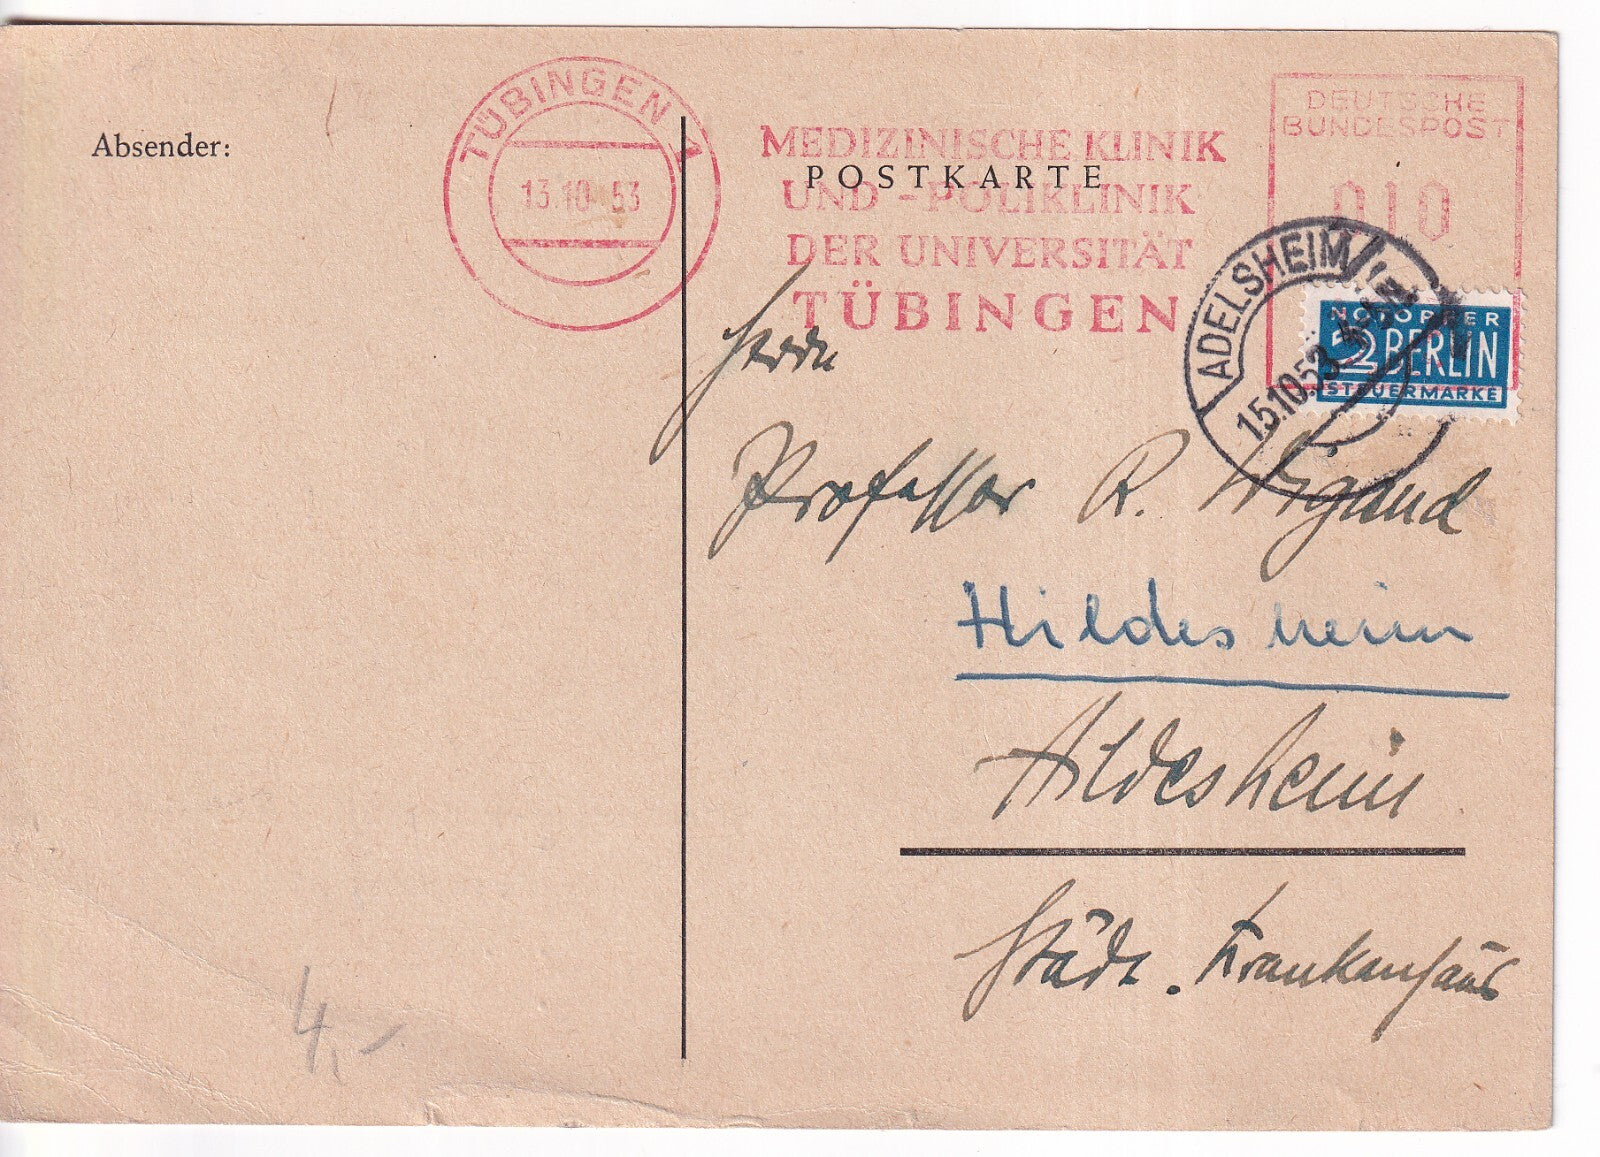 TÜBINGEN 1
13.10 53
MEDIZINISCHE KLINIK
UND -POLIKLINIK
DER UNIVERSITÄT
TÜBINGEN
DEUTSCHE
BUNDESPOST
010
Absender:
POSTKARTE
ADELSHEIM
15.10.53
NOTOPFER
2 BERLIN
STEUERMARKE
Herrn
Professor R. Wigand
Hildesheim
Hildesheim
Städt. Krankenhaus
4,-